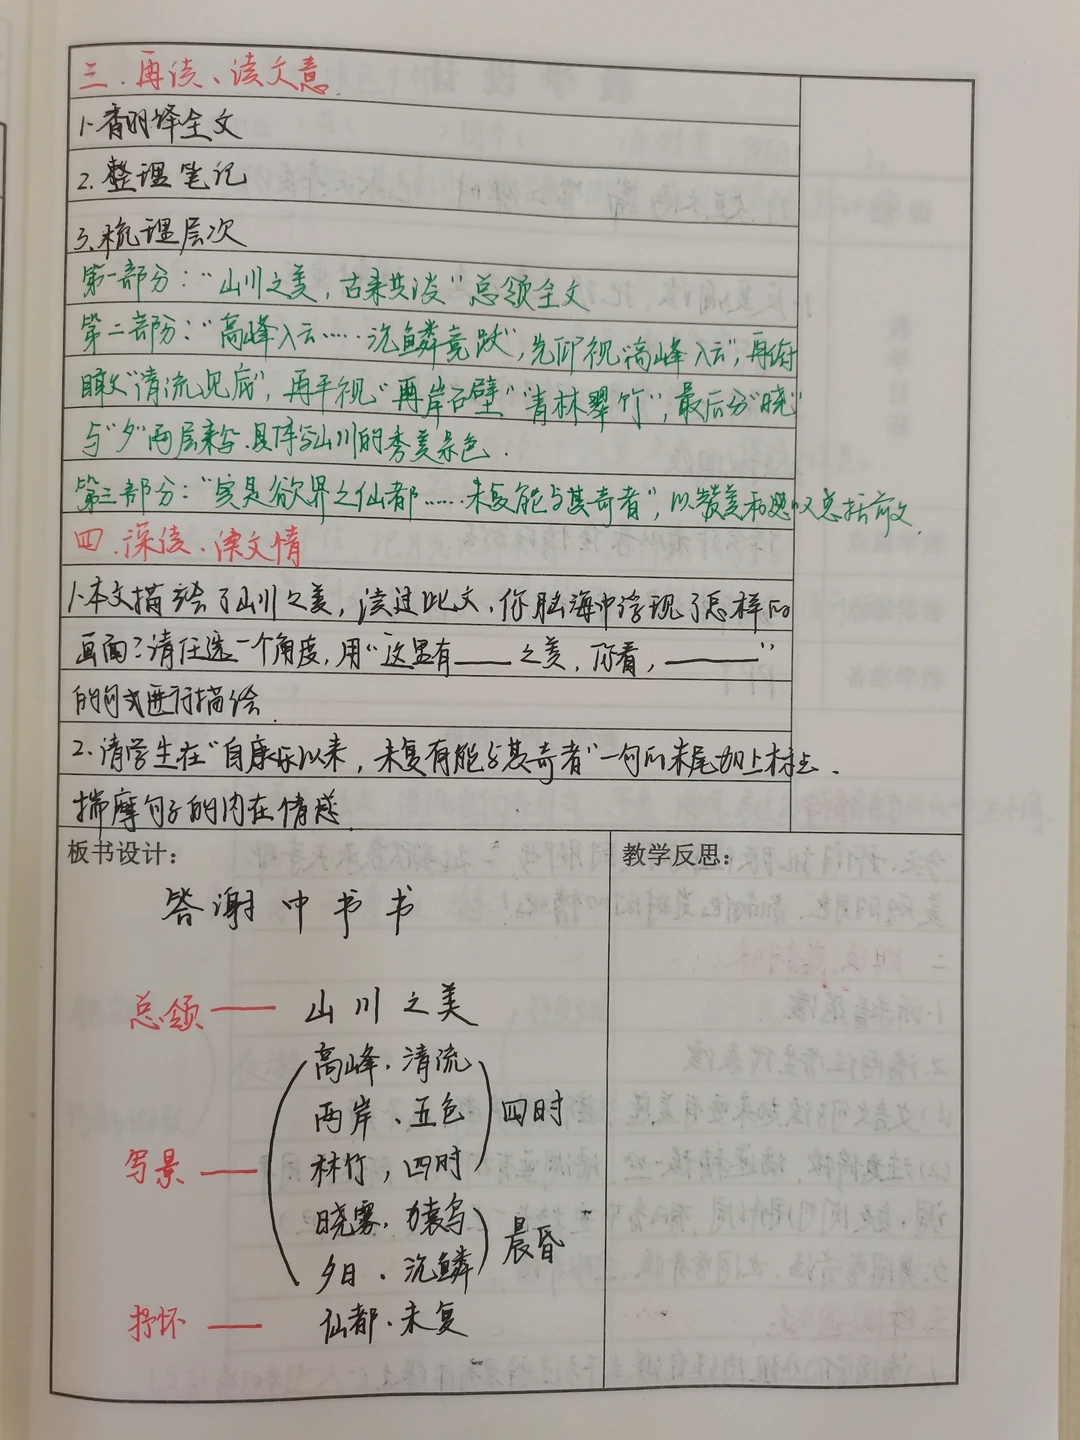 三.再读、读文意.
1.齐翻译全文
2.整理笔记
3.梳理层次
第一部分："山川之美,古来共谈"总领全文
第二部分："高峰入云……沉鳞竞跃",先仰视"高峰入云",再俯
瞰"清流见底",再平视"两岸石壁""青林翠竹",最后分"晓"
与"夕"两层来写.具体写山川的秀美景色.
第三部分："实是欲界之仙都……未复能与其奇者",以赞美和感叹总括前文.
四.深读、读文情
1.本文描绘了山川之美,读过此文,你脑海中浮现了怎样的
画面?请任选一个角度,用"这里有____之美,你看,______"
的句式进行描绘.
2.请学生在"自康乐以来,未复有能与其奇者"一句的末尾加上标点.
揣摩句子的内在情感.
板书设计：
教学反思：
答谢中书书
总领—— 山川之美
高峰、清流
两岸、五色 四时
写景—— 林竹,四时
晓雾、猿鸟
夕日、沉鳞 晨昏
抒怀—— 仙都、未复